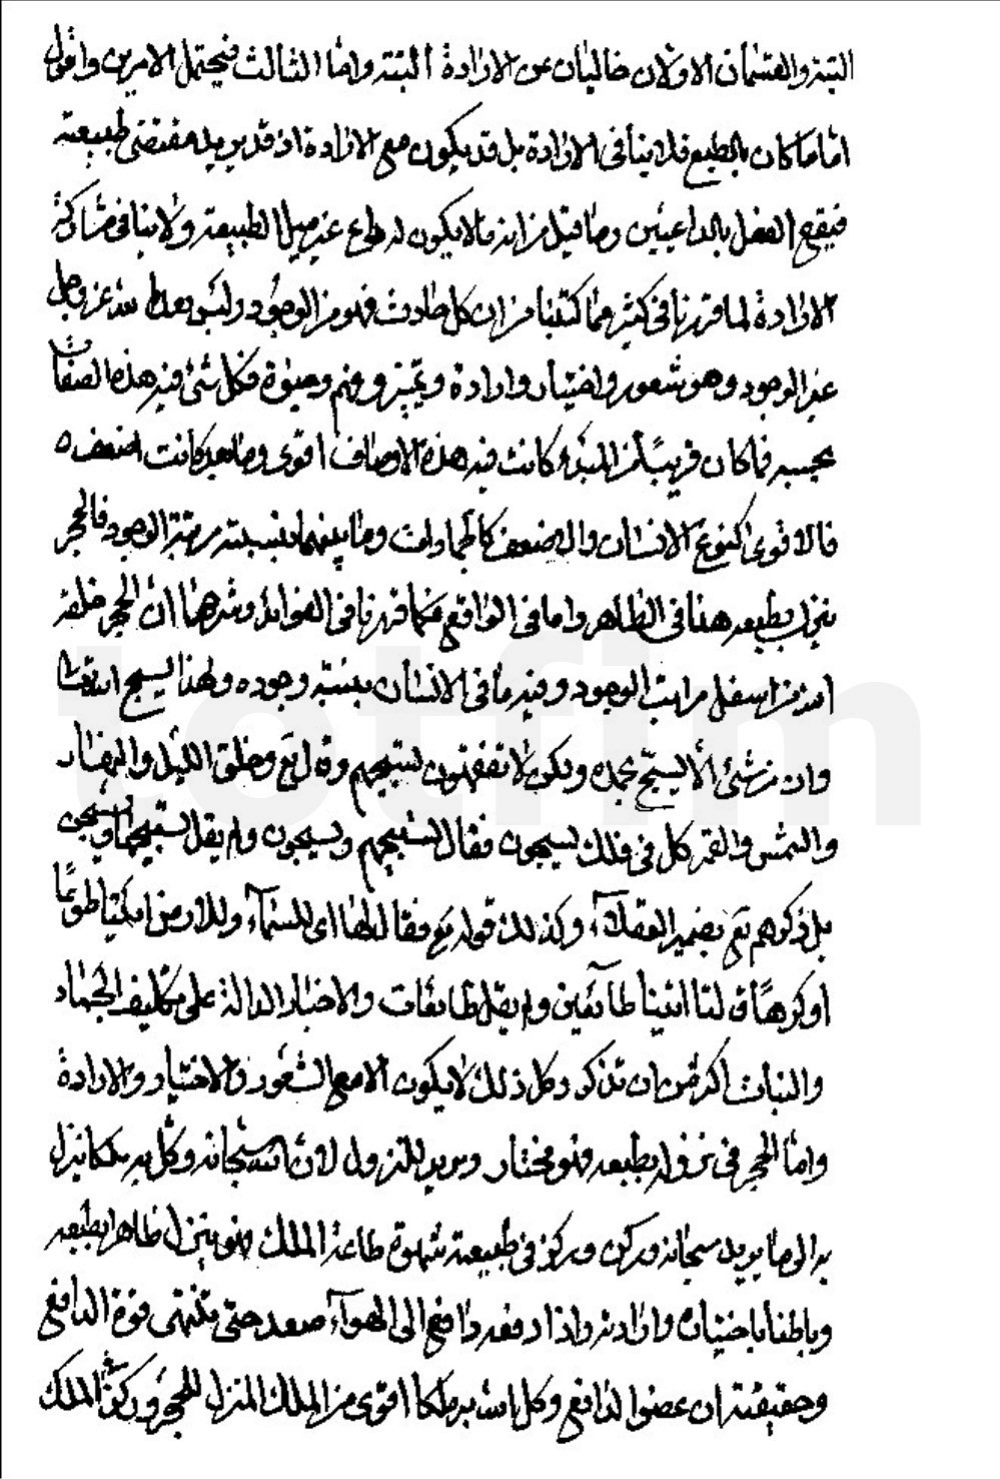 البتة والقسمان الاولان خاليان عن الارادة البتة واما الثالث فيحتمل الامرين واقول
اما ما كان بالطبع فلا ينافى الارادة بل قد يكون مع الارادة اذ قد يريد مقتضى طبيعته
فيقع الفعل بالداعيين وما قيل من انه ما لا يكون له طوع عن ميل الطبيعة ولا ينافى مشاركة
الارادة لما قررنا فى كثير مما كتبنا من ان كل حادث فهو من الوجود وليس بعد الله عز وجل
غير الوجود وهو شعور واختيار وارادة وتميز وفهم وحيوة فكل شئ فيه هذه الصفات
بحسبه فما كان قريبا من المبدء كانت فيه هذه الاوصاف اقوى وما بعد كانت اضعف ه
فالاقوى كنوع الانسان والاضعف كالجمادات وما بينهما بنسبته مرتبة الوجود فالحجر
ينزل بطبعه هذا فى الظاهر واما فى الواقع فكما قررنا فى الفوائد وشرحها ان الحجر خلقه
الله من اسفل مراتب الوجود وفيه ما فى الانسان بنسبة وجوده ولهذا يسبح الله تعالى
وان من شئ الا يسبح بحمده ولكن لا تفقهون تسبيحهم وقال تع وخلق الليل والنهار
والشمس والقمر كل فى فلك يسبحون فقال تسبيحهم ويسبحون ولم يقل تسبيحها ويسبحن
بل ذكرهم تع بضمير العقلاء وكذلك قوله تع فقال لها اى للسماء وللارض ائتيا طوعا
او كرها قالتا اتينا طائعين ولم يقل طائعات والاخبار الدالة على تكليف الجماد
والنبات اكثر من ان تذكر وكل ذلك لا يكون الا مع الشعور والاختيار والارادة
واما الحجر فى نزوله بطبعه فهو مختار ومريد للنزول لان الله سبحانه وكل به ملكا ينزل
به الى ما يريد سبحانه وركن وركز فى طبيعته شهوة طاعة الملك فهو ينزل ظاهرا بطبعه
وباطنا باختياره وارادته واذا دفعه دافع الى الهواء صعد حتى تنتهى قوة الدافع
وحقيقته ان عضو الدافع وكل الله به ملكا اقوى من الملك المنزل للحجر وركون الملك